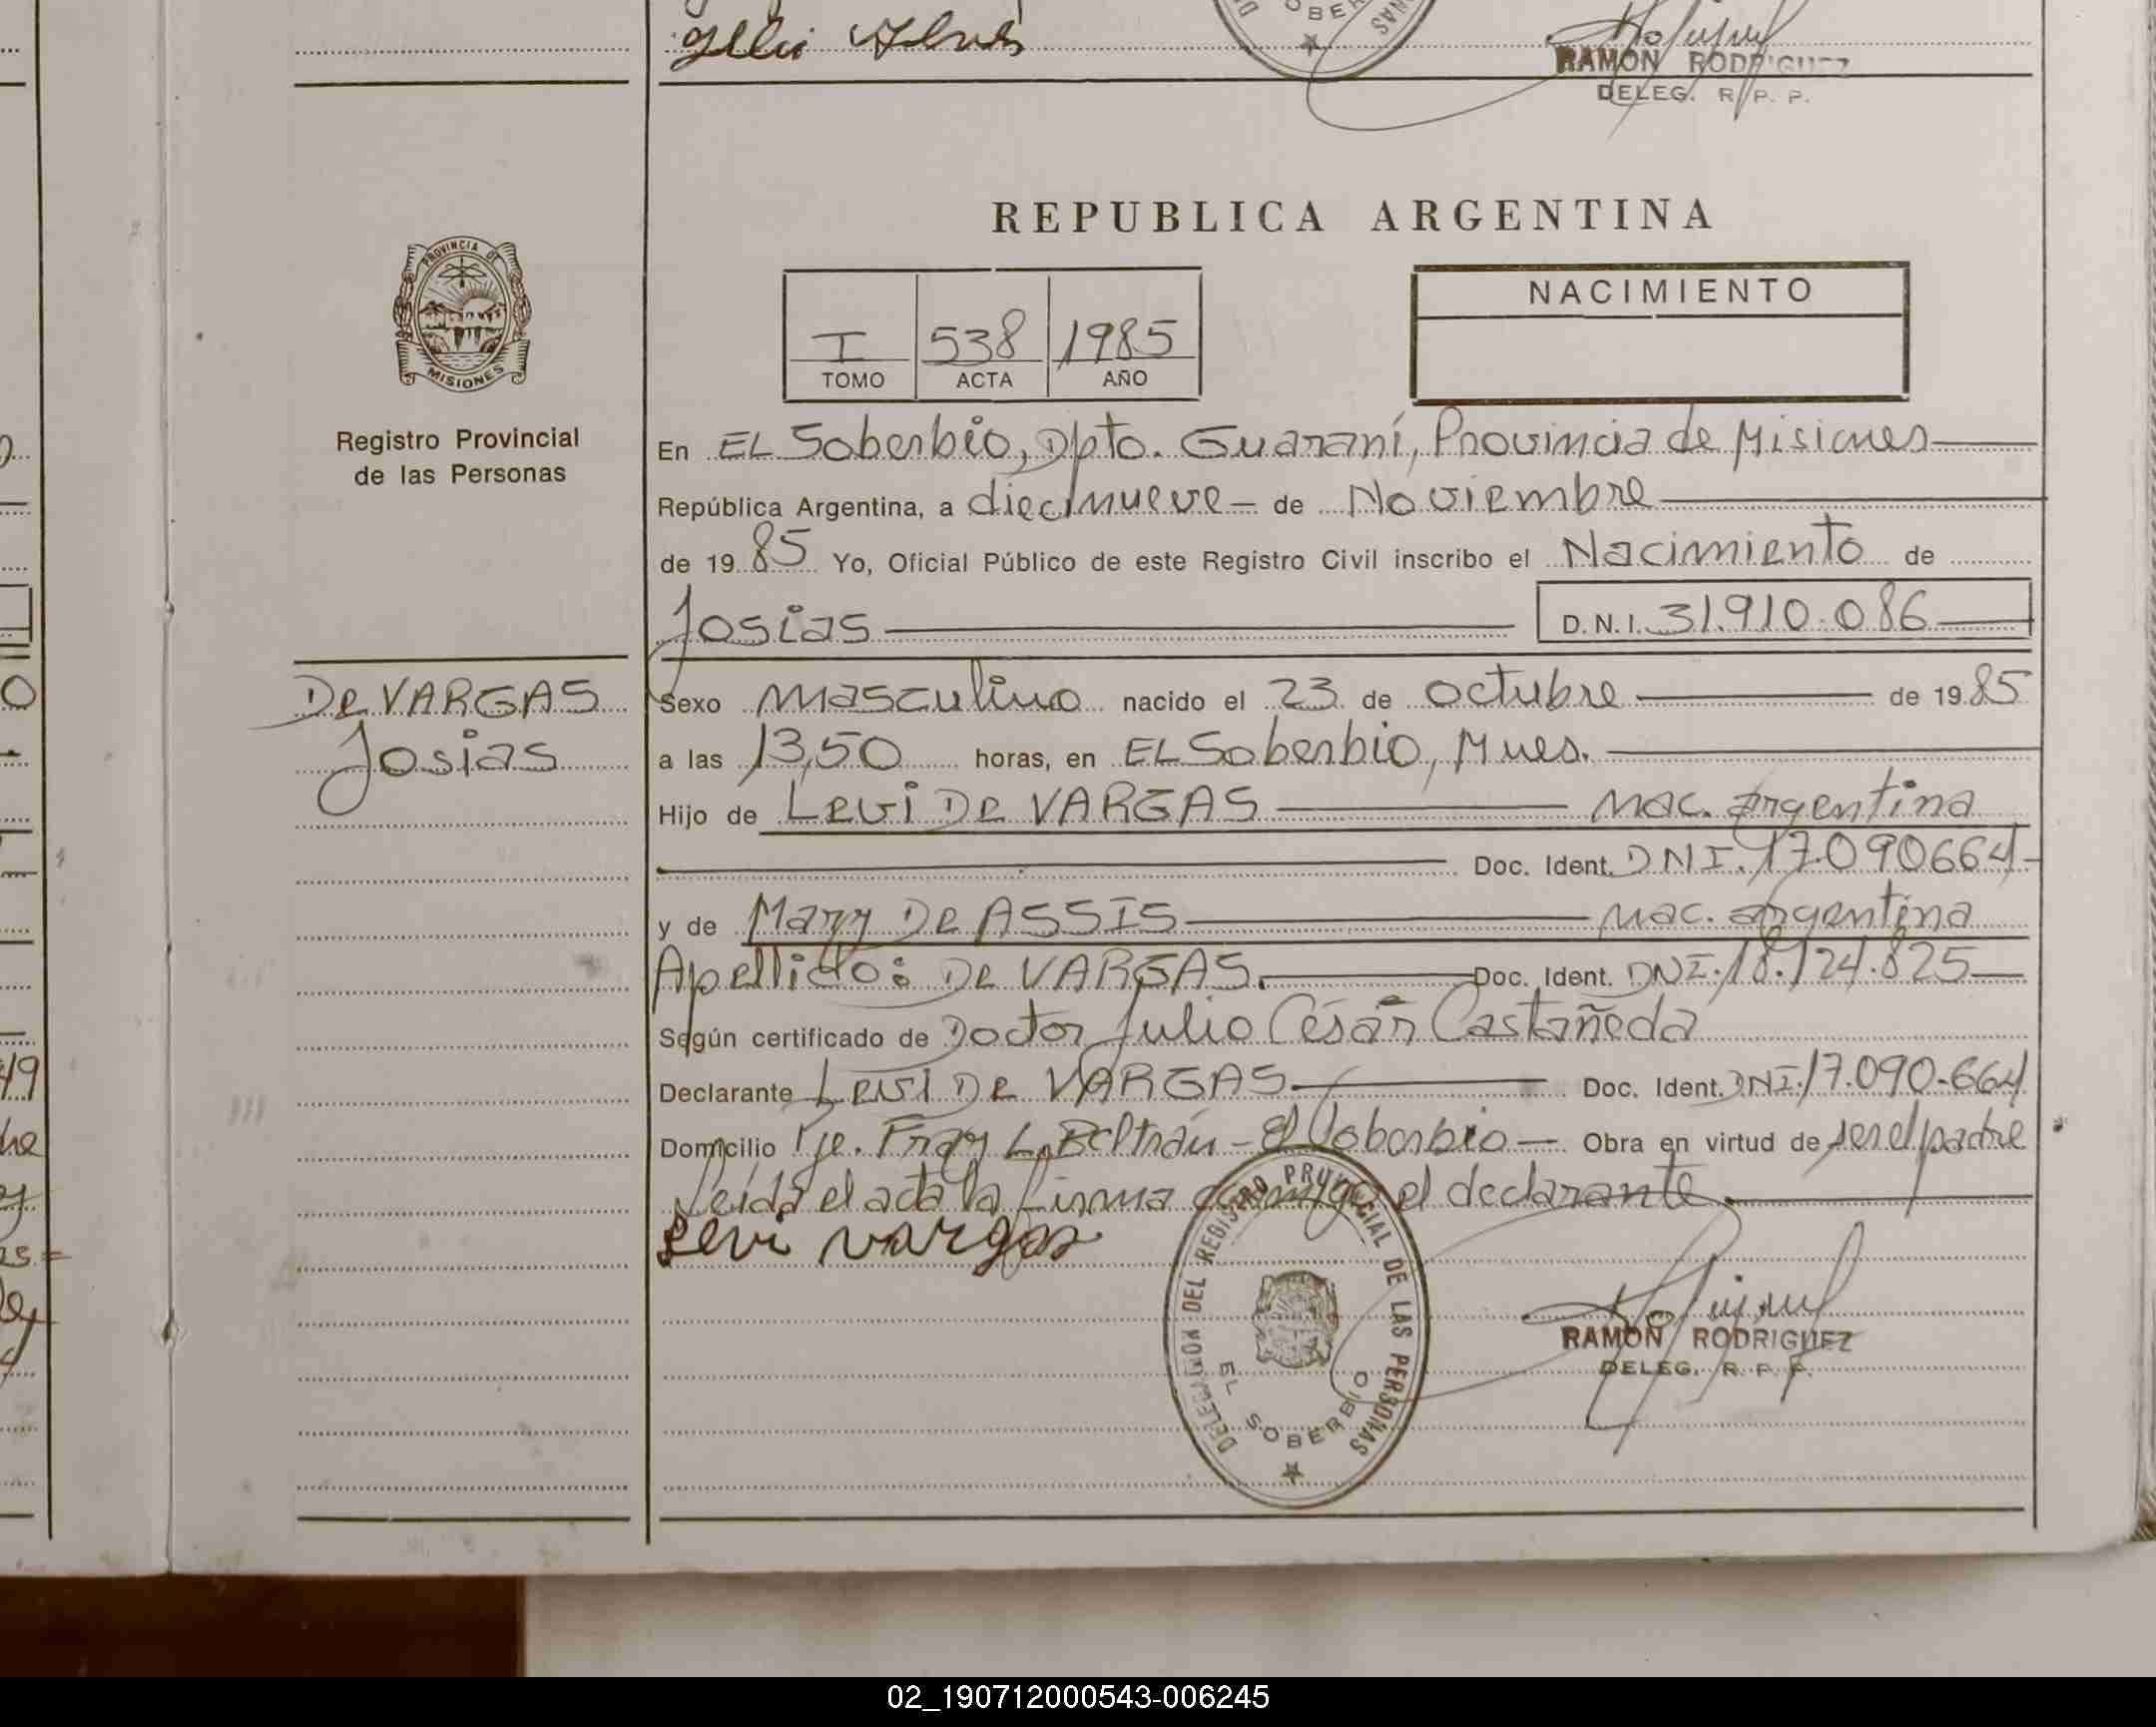 RAMON RODRIGUEZ
DELEG. R. P. P.
REPUBLICA ARGENTINA
PROVINCIA DE
MISIONES
Registro Provincial
de las Personas
I 538 1985
TOMO ACTA AÑO
NACIMIENTO
En EL Soberbio, Dpto. Guaraní, Provincia de Misiones
República Argentina, a diecinueve de Noviembre
de 1985 Yo, Oficial Público de este Registro Civil inscribo el Nacimiento de
Josias D.N.I. 31.910.086
De VARGAS
Josias
Sexo masculino nacido el 23 de octubre de 1985
a las 13,50 horas, en EL Soberbio, Mnes.
Hijo de Levi De VARGAS nac. argentina
Doc. Ident. DNI. 17.090664
y de Mary De ASSIS nac. argentina
Apellido: De VARGAS. Doc. Ident. DNI. 18.124.825
Según certificado de Doctor Julio César Castañeda
Declarante Levi De VARGAS Doc. Ident. DNI. 17.090.664
Domicilio Pje. Fray L. Beltrán - El Soberbio Obra en virtud de ser el padre
Leída el acta la firma conmigo el declarante.
Levi vargas
DELEGACION DEL REGISTRO PROVINCIAL DE LAS PERSONAS
EL SOBERBIO
RAMON RODRIGUEZ
DELEG. R. P. P.
02_190712000543-006245